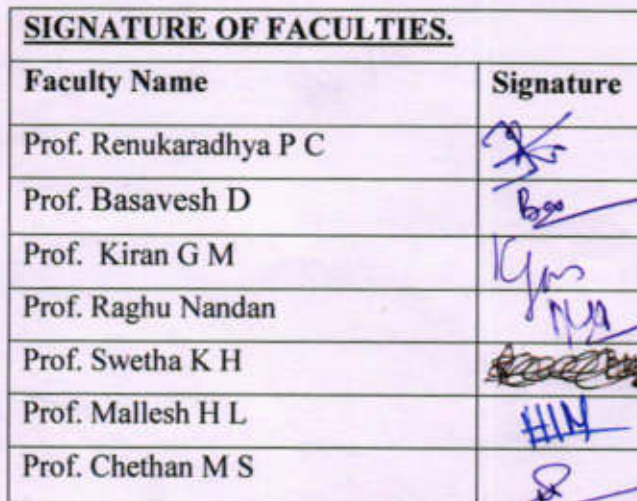 SIGNATURE OF FACULTIES.
Faculty Name Signature
Prof. Renukaradhya P C
Prof. Basavesh D
Prof. Kiran G M
Prof. Raghu Nandan
Prof. Swetha K H
Prof. Mallesh H L
Prof. Chethan M S